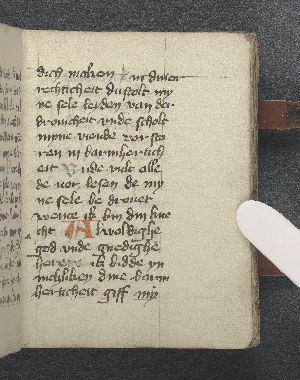 dich maken in diner
rechticheit du scolt my
ne sele leiden van der
drouicheit vnde scholt
mine viende vorsto
ren in barmhertich
eit Vnde vult alle
de vor lesen de my
ne sele be drouet
wente ik bin din kne
cht Alwoldighe
god vnde gnedighe
here ik bidde yn
nichliken dine barm
herticheit giff my